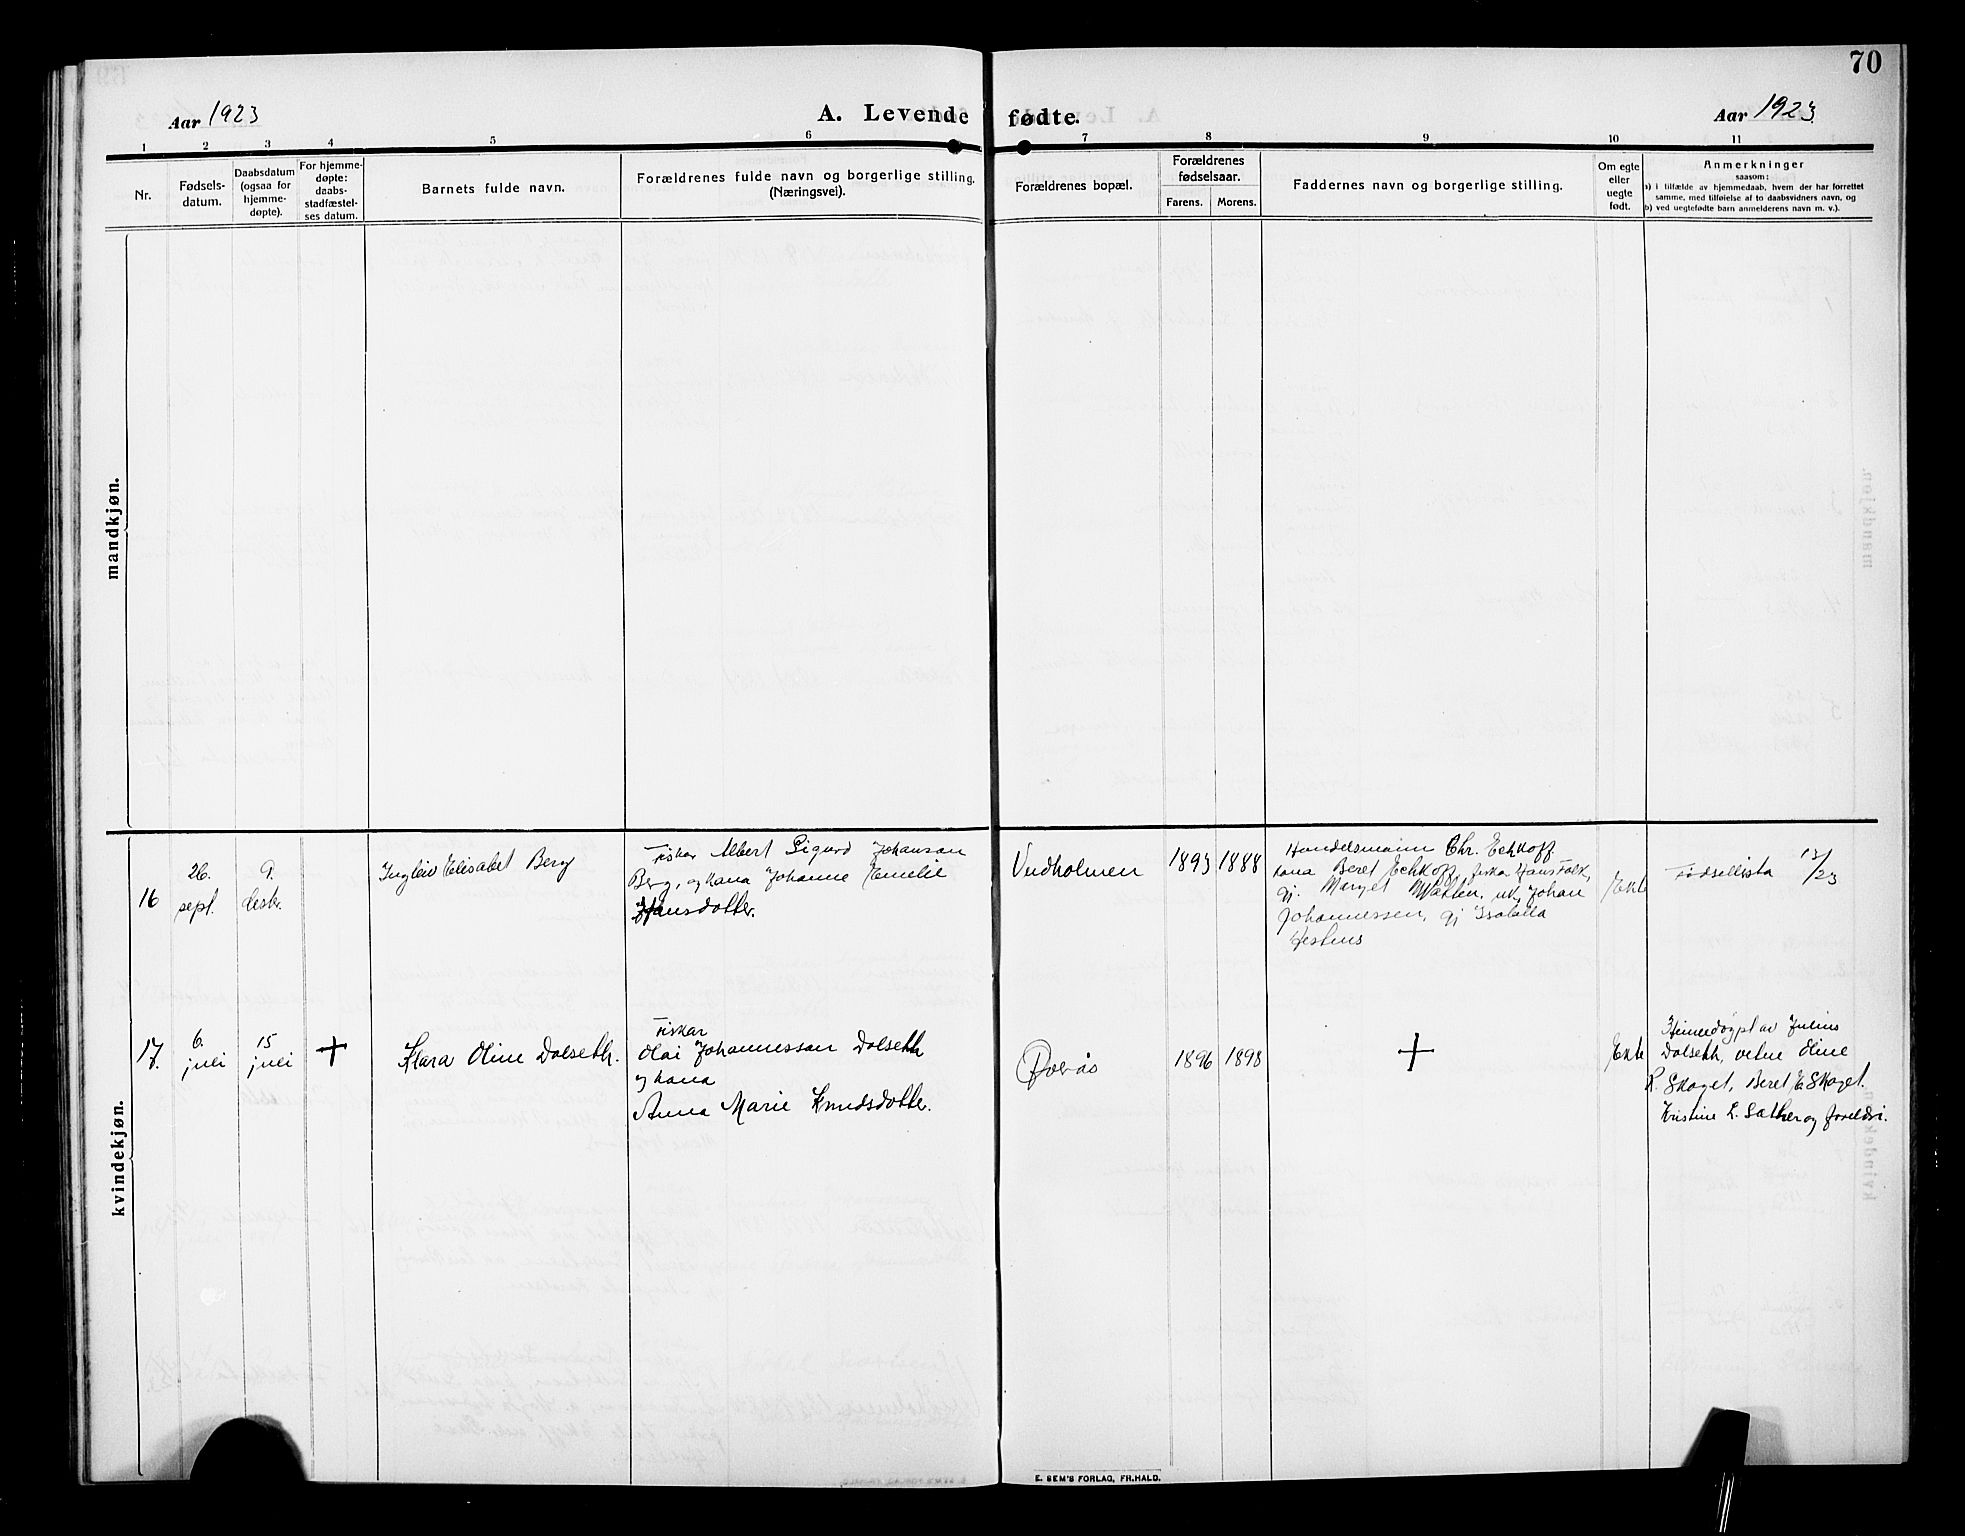 70
Aar 1923
A. Levende fødte.
Aar 1923
1 2 3 4 5 6 7 8 9 10 11
Nr.
Fødsels-
datum.
Daabsdatum
(ogsaa for
hjemme-
døpte).
For hjemme-
døpte:
daabs-
stadfæstel-
ses datum.
Barnets fulde navn.
Forældrenes fulde navn og borgerlige stilling.
(Næringsvei).
Forældrenes bopæl.
Forældrenes
fødselsaar.
Farens. Morens.
Faddernes navn og borgerlige stilling.
Om egte
eller
uegte
født.
Anmerkninger
saasom:
a) i tilfælde av hjemmedaab, hvem der har forrettet
samme, med tilføielse af to daabsvidners navn, og
b) ved uegtefødte barn anmelderens navn m. v.).
mandkjøn.
kvindekjøn.
16
26.
sept.
9.
desbr.
Ingleiv Elisabet Berg
Fiskar Albert Sigurd Johanson
Berg, og kona Johanne Emelie
Hansdotter.
Veidholmen
1893 1888
Handelsmann Chr. Eckhoff
kona Beret Eckhoff, fiska Hans Falk,
gj. Merget Watten, uk. Johan
Johannessen, gj Isabella
Hestnes
Ekte
Fødsellista 13/23
17.
6.
juli
15
juli
+
Klara Oline Dalseth.
Fiskar
Olai Johannesson Dalseth
og kona
Anna Marie Knudsdotter.
1896 1898
+
Ekte
Heimedøypt av Julius
Dalseth, vitne Oline
R. Skaget, Beret E Skaget.
Kristine L. Sæther og foreldri.
E. SEM'S FORLAG, FR.HALD.